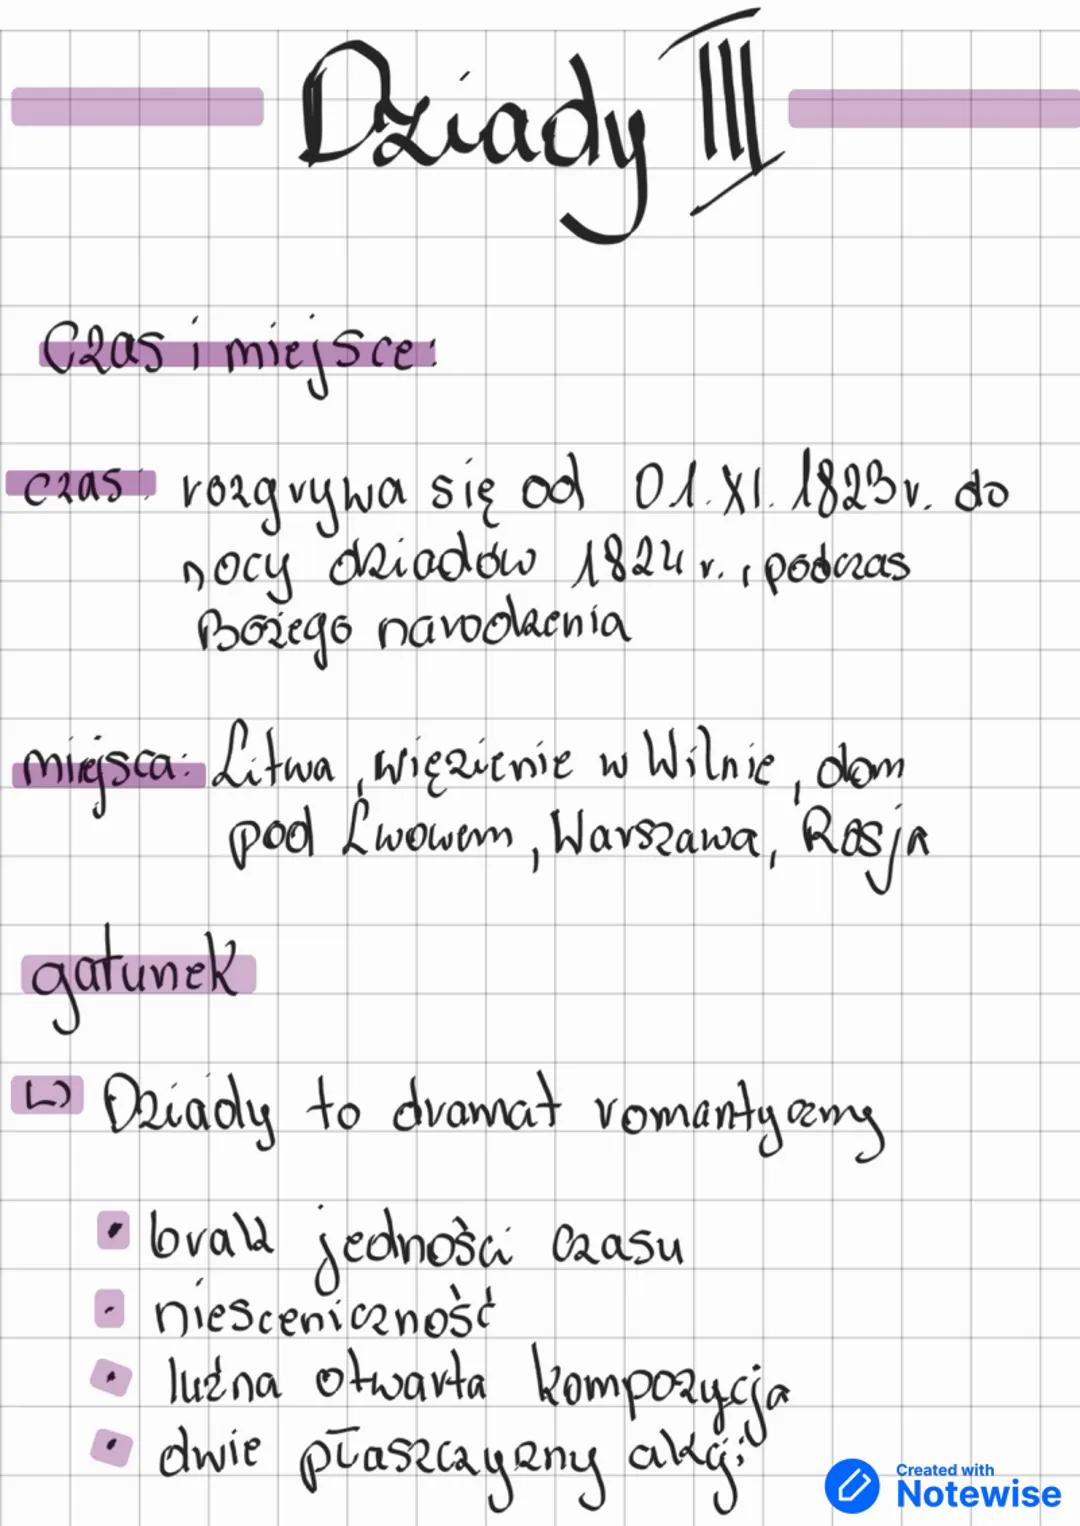 Dziady III
Czas i miejsce:
czas: rozgrywa się od 01.XI.1823r. do
nocy dziadów 1824 r., podczas
Bożego narodzenia
miejsca: Litwa, więzienie w Wilnie, dom
pod Lwowem, Warszawa, Rosja
gatunek
↳ Dziady to dramat romantyczny
• brak jedności czasu
• niesceniczność
• luźna otwarta kompozycja
• dwie płaszczyzny akcji
Created with
Notewise